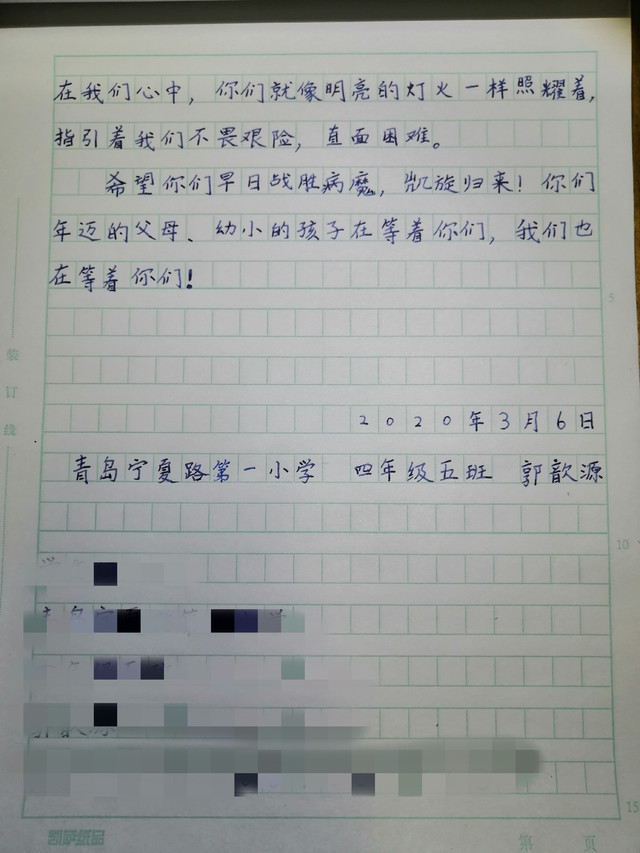 在我们心中，你们就像明亮的灯火一样照耀着，
指引着我们不畏艰险，直面困难。
希望你们早日战胜病魔，凯旋归来！你们
年迈的父母、幼小的孩子在等着你们，我们也
在等着你们！
5
装
订
线
2020年3月6日
青岛宁夏路第一小学 四年级五班 郭歆源
10
15
凯萨纸品
第 页